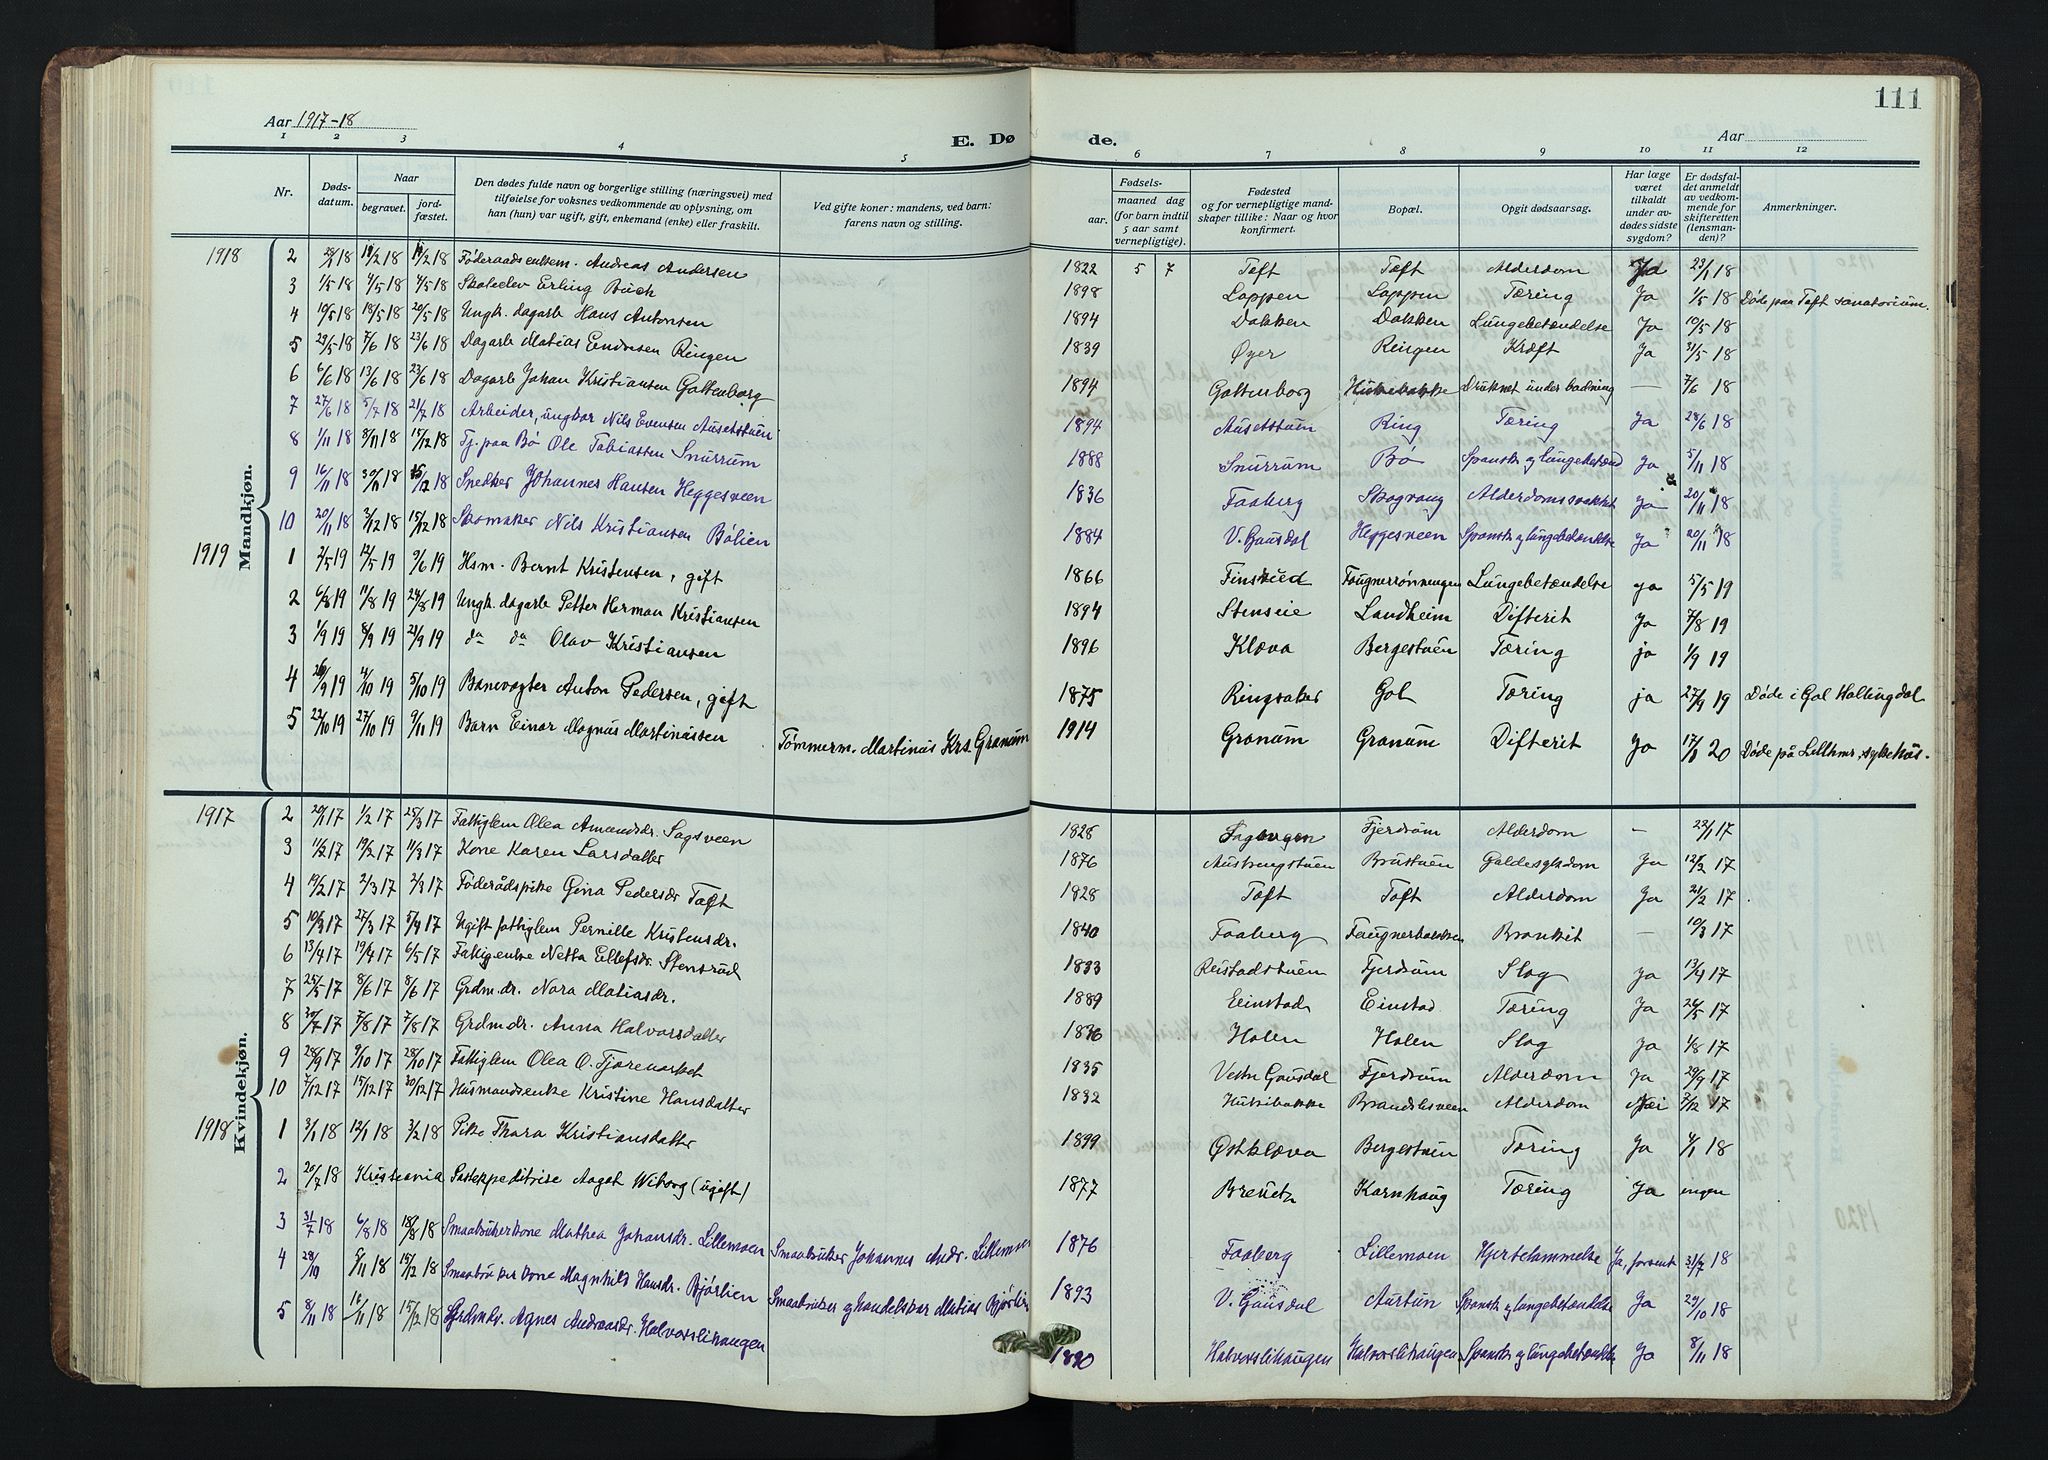 111
Aar 1917-18
E. Dø
de.
Aar
1 2 3 4 5 6 7 8 9 10 11 12
Nr.
Døds-
datum.
Naar
begravet.
jord-
fæstet.
Den dødes fulde navn og borgerlige stilling (næringsvei) med
tilføielse for voksnes vedkommende av oplysning, om
han (hun) var ugift, gift, enkemand (enke) eller fraskilt.
Ved gifte koner: mandens, ved barn:
farens navn og stilling.
Fødsels-
aar.
maaned dag
(for barn indtil
5 aar samt
vernepligtige).
Fødested
og for vernepligtige mand-
skaper tillike: Naar og hvor
konfirmert.
Bopæl.
Opgit dødsaarsag.
Har læge
været
tilkaldt
under av-
dødes sidste
sygdom?
Er dødsfal-
det anmeldt
av vedkom-
mende for
skifteretten
(lensman-
den)?
Anmerkninger.
Mandkjøn.
1918 2 19/2 18 Føderaadsenkem. Andreas Andersen 1822 5 7 Toft Toft Alderdom Ja 23/1 18
3 1/5 18 4/5 18 4/5 18 Skoleelev Erling Buch 1898 Loppen Loppen Tæring Ja 1/5 18 Døde paa Toft sanatorium.
4 10/5 18 18/5 18 20/5 18 Ungk. dagarb. Hans Antonsen 1894 Dakken Dakken Lungebetændelse Ja 10/5 18
5 29/5 18 7/6 18 23/6 18 Dagarb. Matias Endresen Ringen 1839 Øyer Ringen Kræft Ja 31/5 18
6 6/6 18 13/6 18 23/6 18 Dagarb. Johan Kristiansen Goltenborg 1894 Goltenborg Druknet under badning — 7/6 18
7 27/6 18 5/7 18 21/7 18 Arbeider, ungkar Nils Evensen Ausetstuen 1894 Ausetstuen Ring Tæring Ja 28/6 18
8 1/11 18 8/11 18 15/12 18 Tj. paa Bø Ole Tobiassen Snurrum 1888 Snurrum Bø Spansk og lungebetænd Ja 5/11 18
9 16/11 18 30/11 18 15/12 18 Snedker Johannes Hansen Heggesveen 1836 Faaberg Skogvang Alderdomssvakhet Ja 20/11 18
10 20/11 18 3/12 18 15/12 18 Skomaker Nils Kristiansen Bølien 1884 V. Gausdal Heggesveen Spansk og lungebetændelse Ja 20/11 18
1919 1 2/5 19 12/5 19 9/6 19 Hsm. Bernt Kristensen, gift 1866 Finstued Fougnerrønningen Lungebetændelse ja 5/5 19
2 6/8 19 11/8 19 24/8 19 Ungk. dagarb. Petter Herman Kristiansen 1894 Stenseie Landheim Difterit Ja 7/8 19
3 1/9 19 8/9 19 21/9 19 da da Olav Kristiansen 1896 Klæva Bergestuen Tæring ja 1/9 19
4 26/9 19 4/10 19 5/10 19 Banevogter Anton Pedersen, gift 1875 Ringsaker Gol Tæring ja 27/9 19 Døde i Gol Hallingdal
5 22/10 19 27/10 19 9/11 19 Barn Einar Magnus Martinussen Tømmerm. Martinus Krs. Granum 1914 Granum Granum Difterit Ja 17/1 20 Døde på Lillhmr. sykehus.
Kvindekjøn.
1917 2 20/1 17 1/2 17 25/3 17 Fattiglem Olea Amundsdr. Sagsveen 1828 Fjerdrum Alderdom — 22/1 17
3 11/2 17 19/2 17 11/3 17 Kone Karen Larsdatter 1876 Austrengstuen Brustuen Galdesykdom Ja 12/2 17
4 19/2 17 2/3 17 2/3 17 Føderådspike Gina Pedersdr Toft 1828 Toft Toft Alderdom Ja 21/2 17
5 10/3 17 27/3 17 5/4 17 Ugift fattiglem Pernille Kristensdr. 1840 Faaberg Faugnerbakken Bronkit — 10/3 17
6 13/4 17 19/4 17 6/5 17 Fattigenke Netta Ellefsdr. Stensrud 1833 Reistadstuen Fjerdrum Slag Ja 13/4 17
7 25/5 17 8/6 17 8/6 17 Grdm.dr. Nora Matiasdr. 1889 Einstad Einstad Tæring Ja 26/5 17
8 30/7 17 7/8 17 7/8 17 Grdm.dr. Anna Halvorsdatter 1836 Holen Holen Slag Ja 1/8 17
9 28/9 17 9/10 17 28/10 17 Fattiglem Olea O. 1835 Vestre Gausdal Fjerdrum Alderdom Ja 29/9 17
10 7/12 17 15/12 17 30/12 17 Husmandsenke Kristine Hansdatter 1832 Alderdom Nei 7/12 17
1918 1 3/1 18 12/1 18 3/2 18 Pike Thora Kristiansdatter 1899 Østklæva Bergestuen Tæring Ja 4/1 18
2 20/7 18 Kristiania Postexpeditrise Aagot Wiborg (ugift) 1877 Karnhaug Tæring Ja ingen
3 31/7 18 6/8 18 18/8 18 Smaabrukerkone Mathea Johansdr. Lillemoen Smaabruker Johannes Andr. Lillemoen 1876 Faaberg Lillemoen Hjertelammelse Ja, forsent 31/7 18
4 28/10 5/11 18 15/12 18 Smaabrukerkone Magnhild Hansdr. Bjørlien Smaabruker og handelskar Matias Bjørlien 1893 V. Gausdal Aurtun Spansk og lungebetændelse Ja 29/10 18
5 8/11 18 16/11 18 15/12 18 Grdmdr. Agnes Andreasdr. Halvorslihaugen 1890 Halvorslihaugen Halvorslihaugen Spansk og lungebetændelse Ja 8/11 18